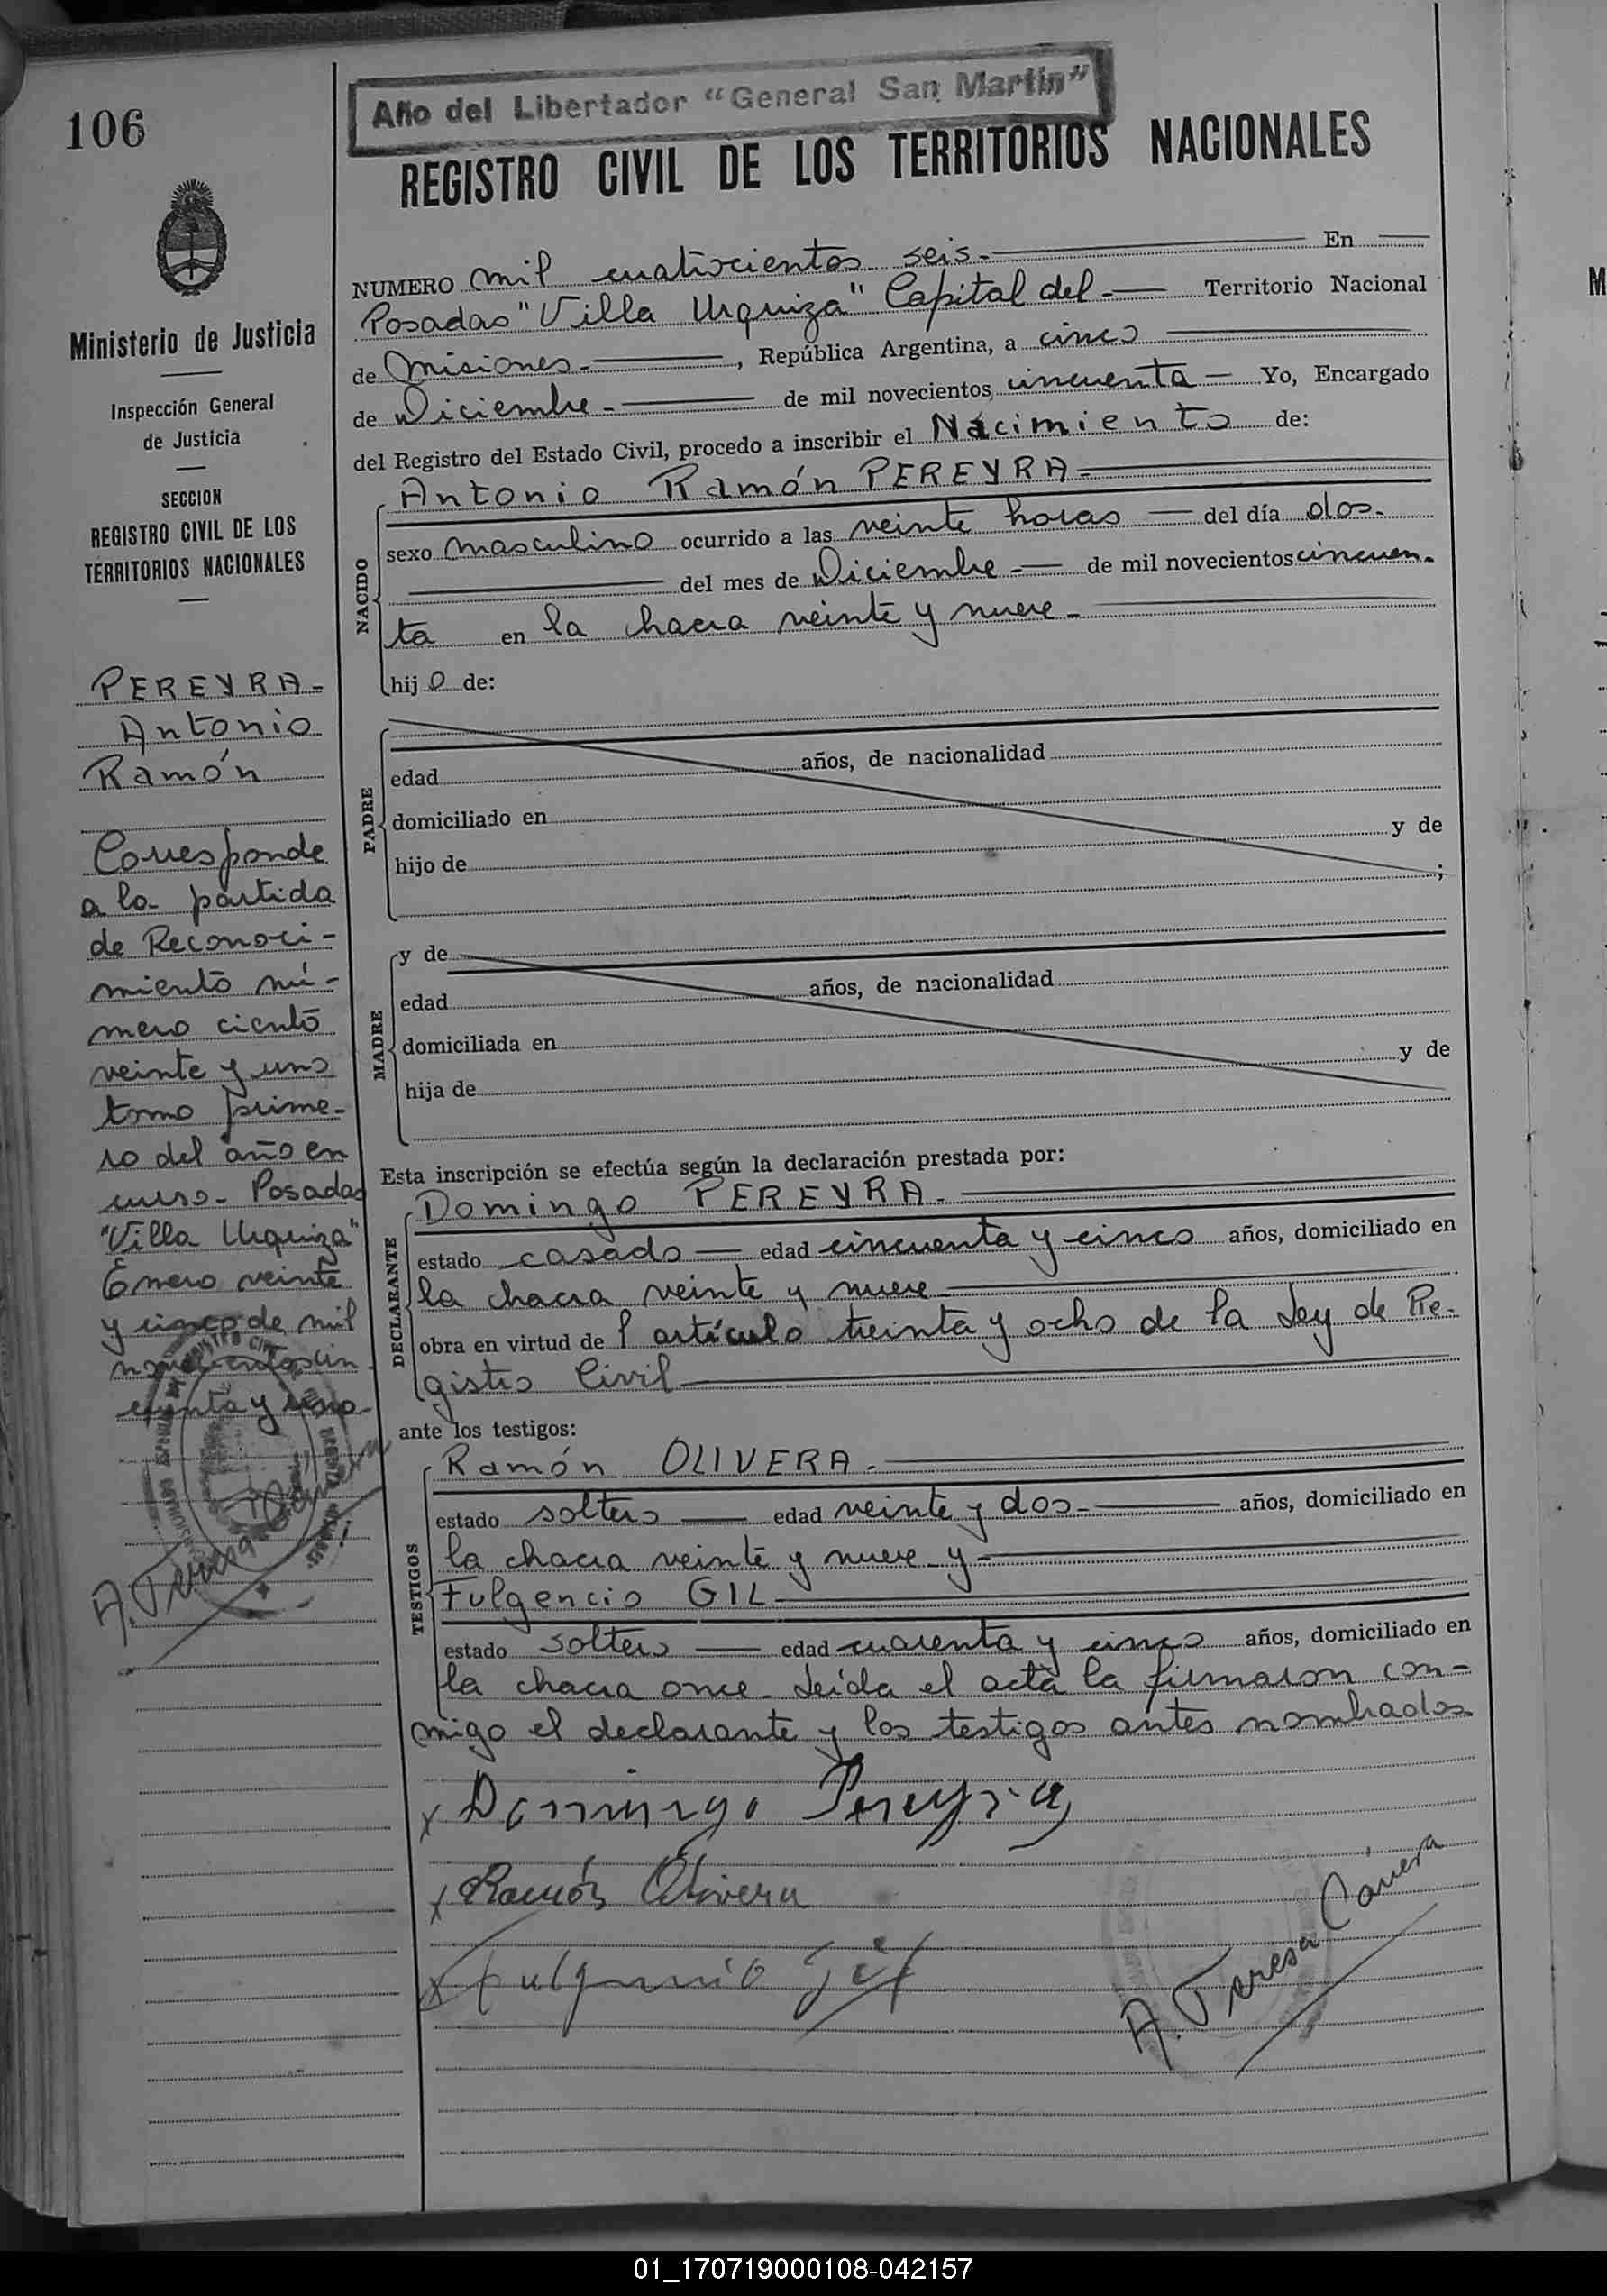 106
Año del Libertador "General San Martín"
REGISTRO CIVIL DE LOS TERRITORIOS NACIONALES
Ministerio de Justicia
Inspección General
de Justicia
SECCION
REGISTRO CIVIL DE LOS
TERRITORIOS NACIONALES
PEREYRA-
Antonio
Ramón
Corresponde
a la partida
de Reconoci-
miento nú-
mero ciento
veinte y uno
tomo prime-
ro del año en
curso- Posadas
"Villa Urquiza"
Enero veinte
y cinco de mil
novecientos cin
cuenta y uno-
A. Teresa
NUMERO mil cuatrocientos seis.- En
Posadas "Villa Urquiza" Capital del.- Territorio Nacional
de Misiones.-, República Argentina, a cinco
de Diciembre.- de mil novecientos cincuenta - Yo, Encargado
del Registro del Estado Civil, procedo a inscribir el Nacimiento de:
NACIDO
Antonio Ramón PEREYRA.-
sexo masculino ocurrido a las veinte horas - del día dos.
del mes de Diciembre.- de mil novecientos cincuen-
ta en la chacra veinte y nueve-
hijo de:
PADRE
edad años, de nacionalidad
domiciliado en
hijo de y de
;
MADRE
y de
edad años, de nacionalidad
domiciliada en
hija de y de
Esta inscripción se efectúa según la declaración prestada por:
DECLARANTE
Domingo PEREYRA.-
estado casado - edad cincuenta y cinco años, domiciliado en
la chacra veinte y nueve
obra en virtud del artículo treinta y ocho de la Ley de Re-
gistro Civil
ante los testigos:
TESTIGOS
Ramón OLIVERA.-
estado soltero - edad veinte y dos.- años, domiciliado en
la chacra veinte y nueve y-
Fulgencio GIL
estado soltero - edad cuarenta y cinco años, domiciliado en
la chacra once- Leída el acta la firmaron con-
migo el declarante y los testigos antes nombrados
x Domingo Pereyra
x Ramón Olivera
x Fulgencio Gil
A. Teresa
01_170719000108-042157